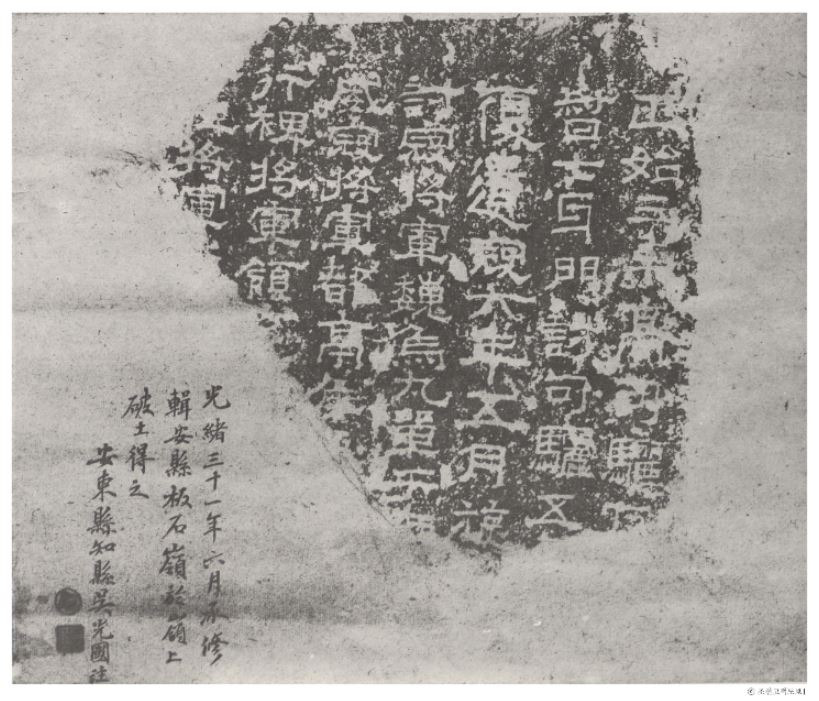 正始三年高句驪
督七牙門討句驪五
復遺寇六年五月旋
討寇將軍魏烏丸單于
威寇將軍都亭侯
行裨將軍領
將軍
光緒三十一年六月修
輯安縣板石嶺於嶺上
破土得之
安東縣知縣吳光國註
ⓒ 조선고적도보1